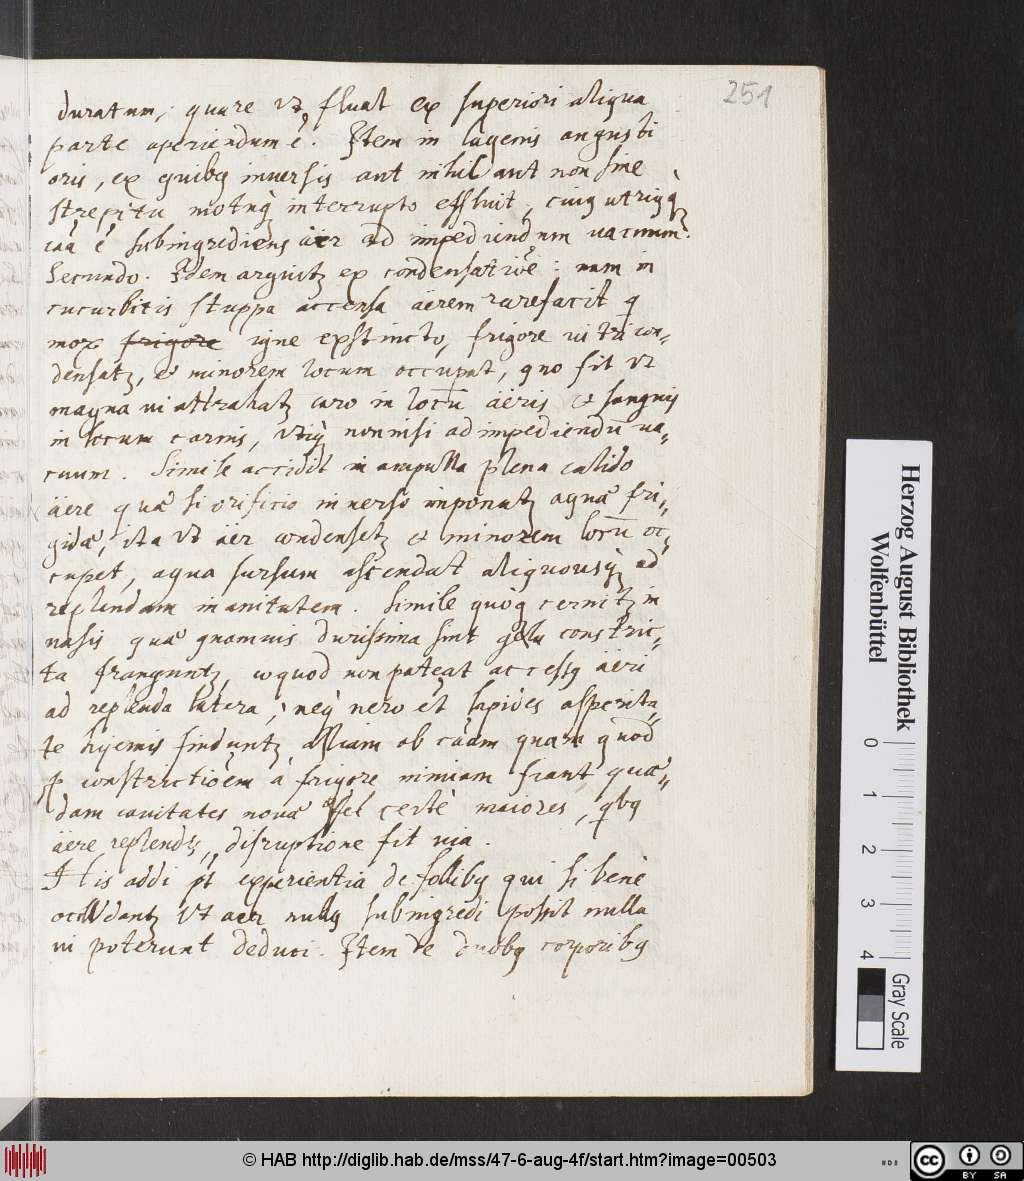 251
duratum, quare vt fluat ex superiori aliqua
parte aperiendum ē. Item in lagenis angusti
oris, ex quibꝰ inuersis aut nihil aut non sine
strepitu motuq̀ interrupto effluit, cuiꝰ utriꝰq̀
caā ē subingrediens äer ad impediendum vacuum.
Secundo. Idem arguitʒ ex condensatiōe: nam in
cucurbitis stuppa accensa äerem rarefacit q
mox frigore igne exstincto, frigore vitri con-
densatʒ, et minorem locum occupat, quo fit vt
magna vi attrahatʒ caro in locū äeris et sanguis
in locum carnis, vtiq̀ nonnisi ad impediendū va-
cuum. Simile accidit in ampulla plena calido
äere quæ si orificio inuerso imponatʒ aquæ fri-
gidæ, ita vt äer condensetʒ et minorem locū oc-
cupet, aqua sursum ascendat aliquousq̀ ad
replendam inanitatem. Simile quoq cernitʒ in
vasis quæ quamuis durissima sint gelu constric-
ta franguntʒ, eo quod non pateat accessꝰ äeri
ad replenda latera, neq̀ vero et lapides asperita-
te hyemis finduntʒ aliam ob caām quam quod
ꝑ constrictiōem à frigore nimiam fiant quæ-
dam cauitates nouæ vel certè maiores, qbꝰ
äere replendis, disruptione fit via.
His addi pt experientia de follibꝰ qui si benè
occludantʒ vt aer nullꝰ subingredi possit nulla
vi poterunt deduci. Item de duobꝰ corporibꝰ
Herzog August Bibliothek
Wolfenbüttel
0 1 2 3 4
Gray Scale
© HAB http://diglib.hab.de/mss/47-6-aug-4f/start.htm?image=00503
cc BY SA